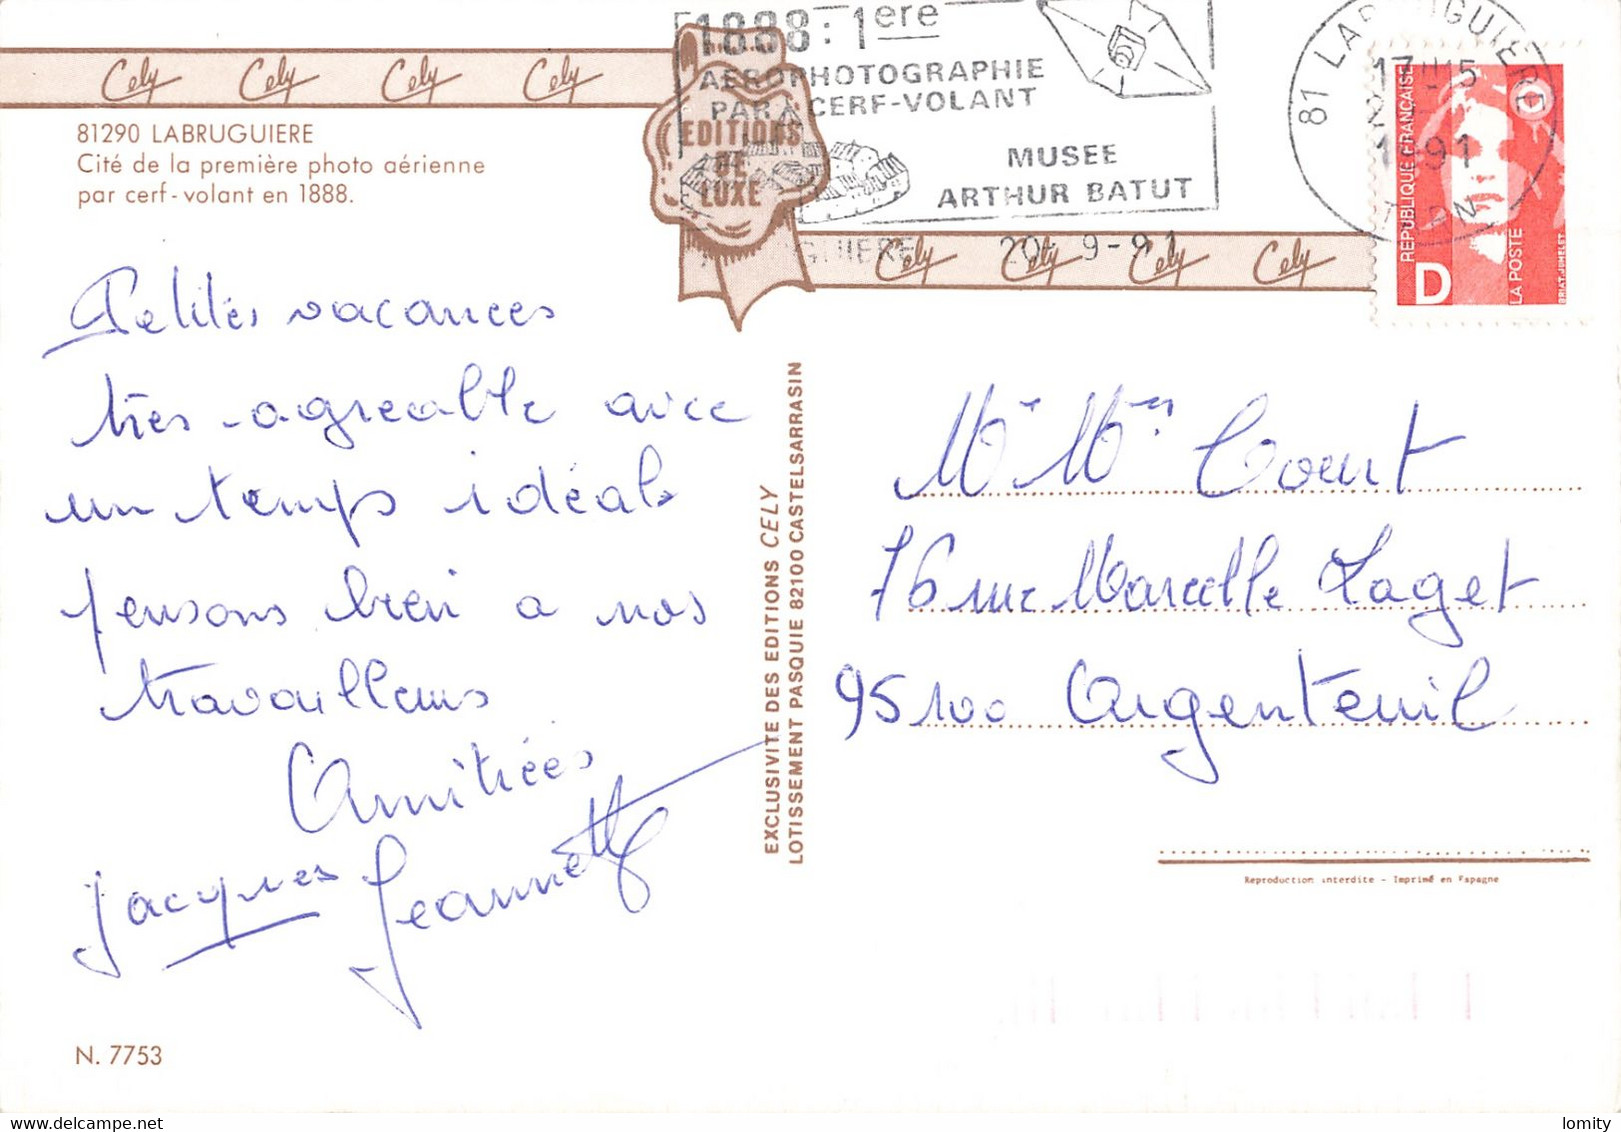 Cely Cely Cely Cely
81290 LABRUGUIERE
Cité de la première photo aérienne
par cerf-volant en 1888.
EDITIONS
DE
LUXE
1888 : 1ere
AEROPHOTOGRAPHIE
PAR CERF-VOLANT
MUSEE
ARTHUR BATUT
GUIERE 20-9-91
Cely Cely Cely Cely
81 LABRUGUIERE
17 H 15
1991
TARN
REPUBLIQUE FRANÇAISE
D
LA POSTE
BRIAT.JUMELET
Petites vacances
très agreable avec
un temps idéale
pensons bien a nos
travailleurs
Amitiées
Jacques Jeannette
N. 7753
EXCLUSIVITE DES EDITIONS CELY
LOTISSEMENT PASQUIE 82100 CASTELSARRASIN
Mr Mme Court
76 rue Marcelle Laget
95100 Argenteuil
Reproduction interdite - Imprimé en Espagne
lomity